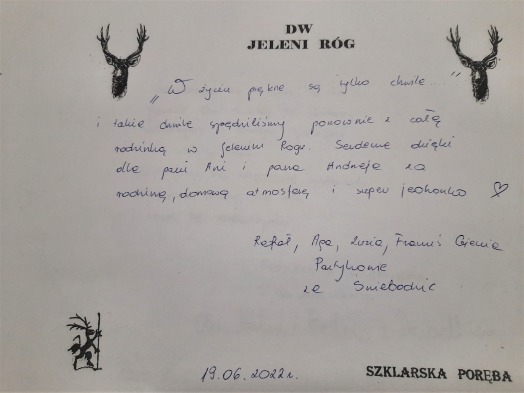 DW
JELENI RÓG
"W życiu piękne są tylko chwile...."
i takie chwile spędziliśmy ponownie z całą
rodzinką w Jelenim Rogu. Serdeczne dzięki
dla pani Ani i pana Andrzeja za
rodzinną, domową atmosferę i super jedzonko ♡
Rafał, Aga, Zuzia, Franuś
ze Świebodzic
19.06.2022r.
SZKLARSKA PORĘBA